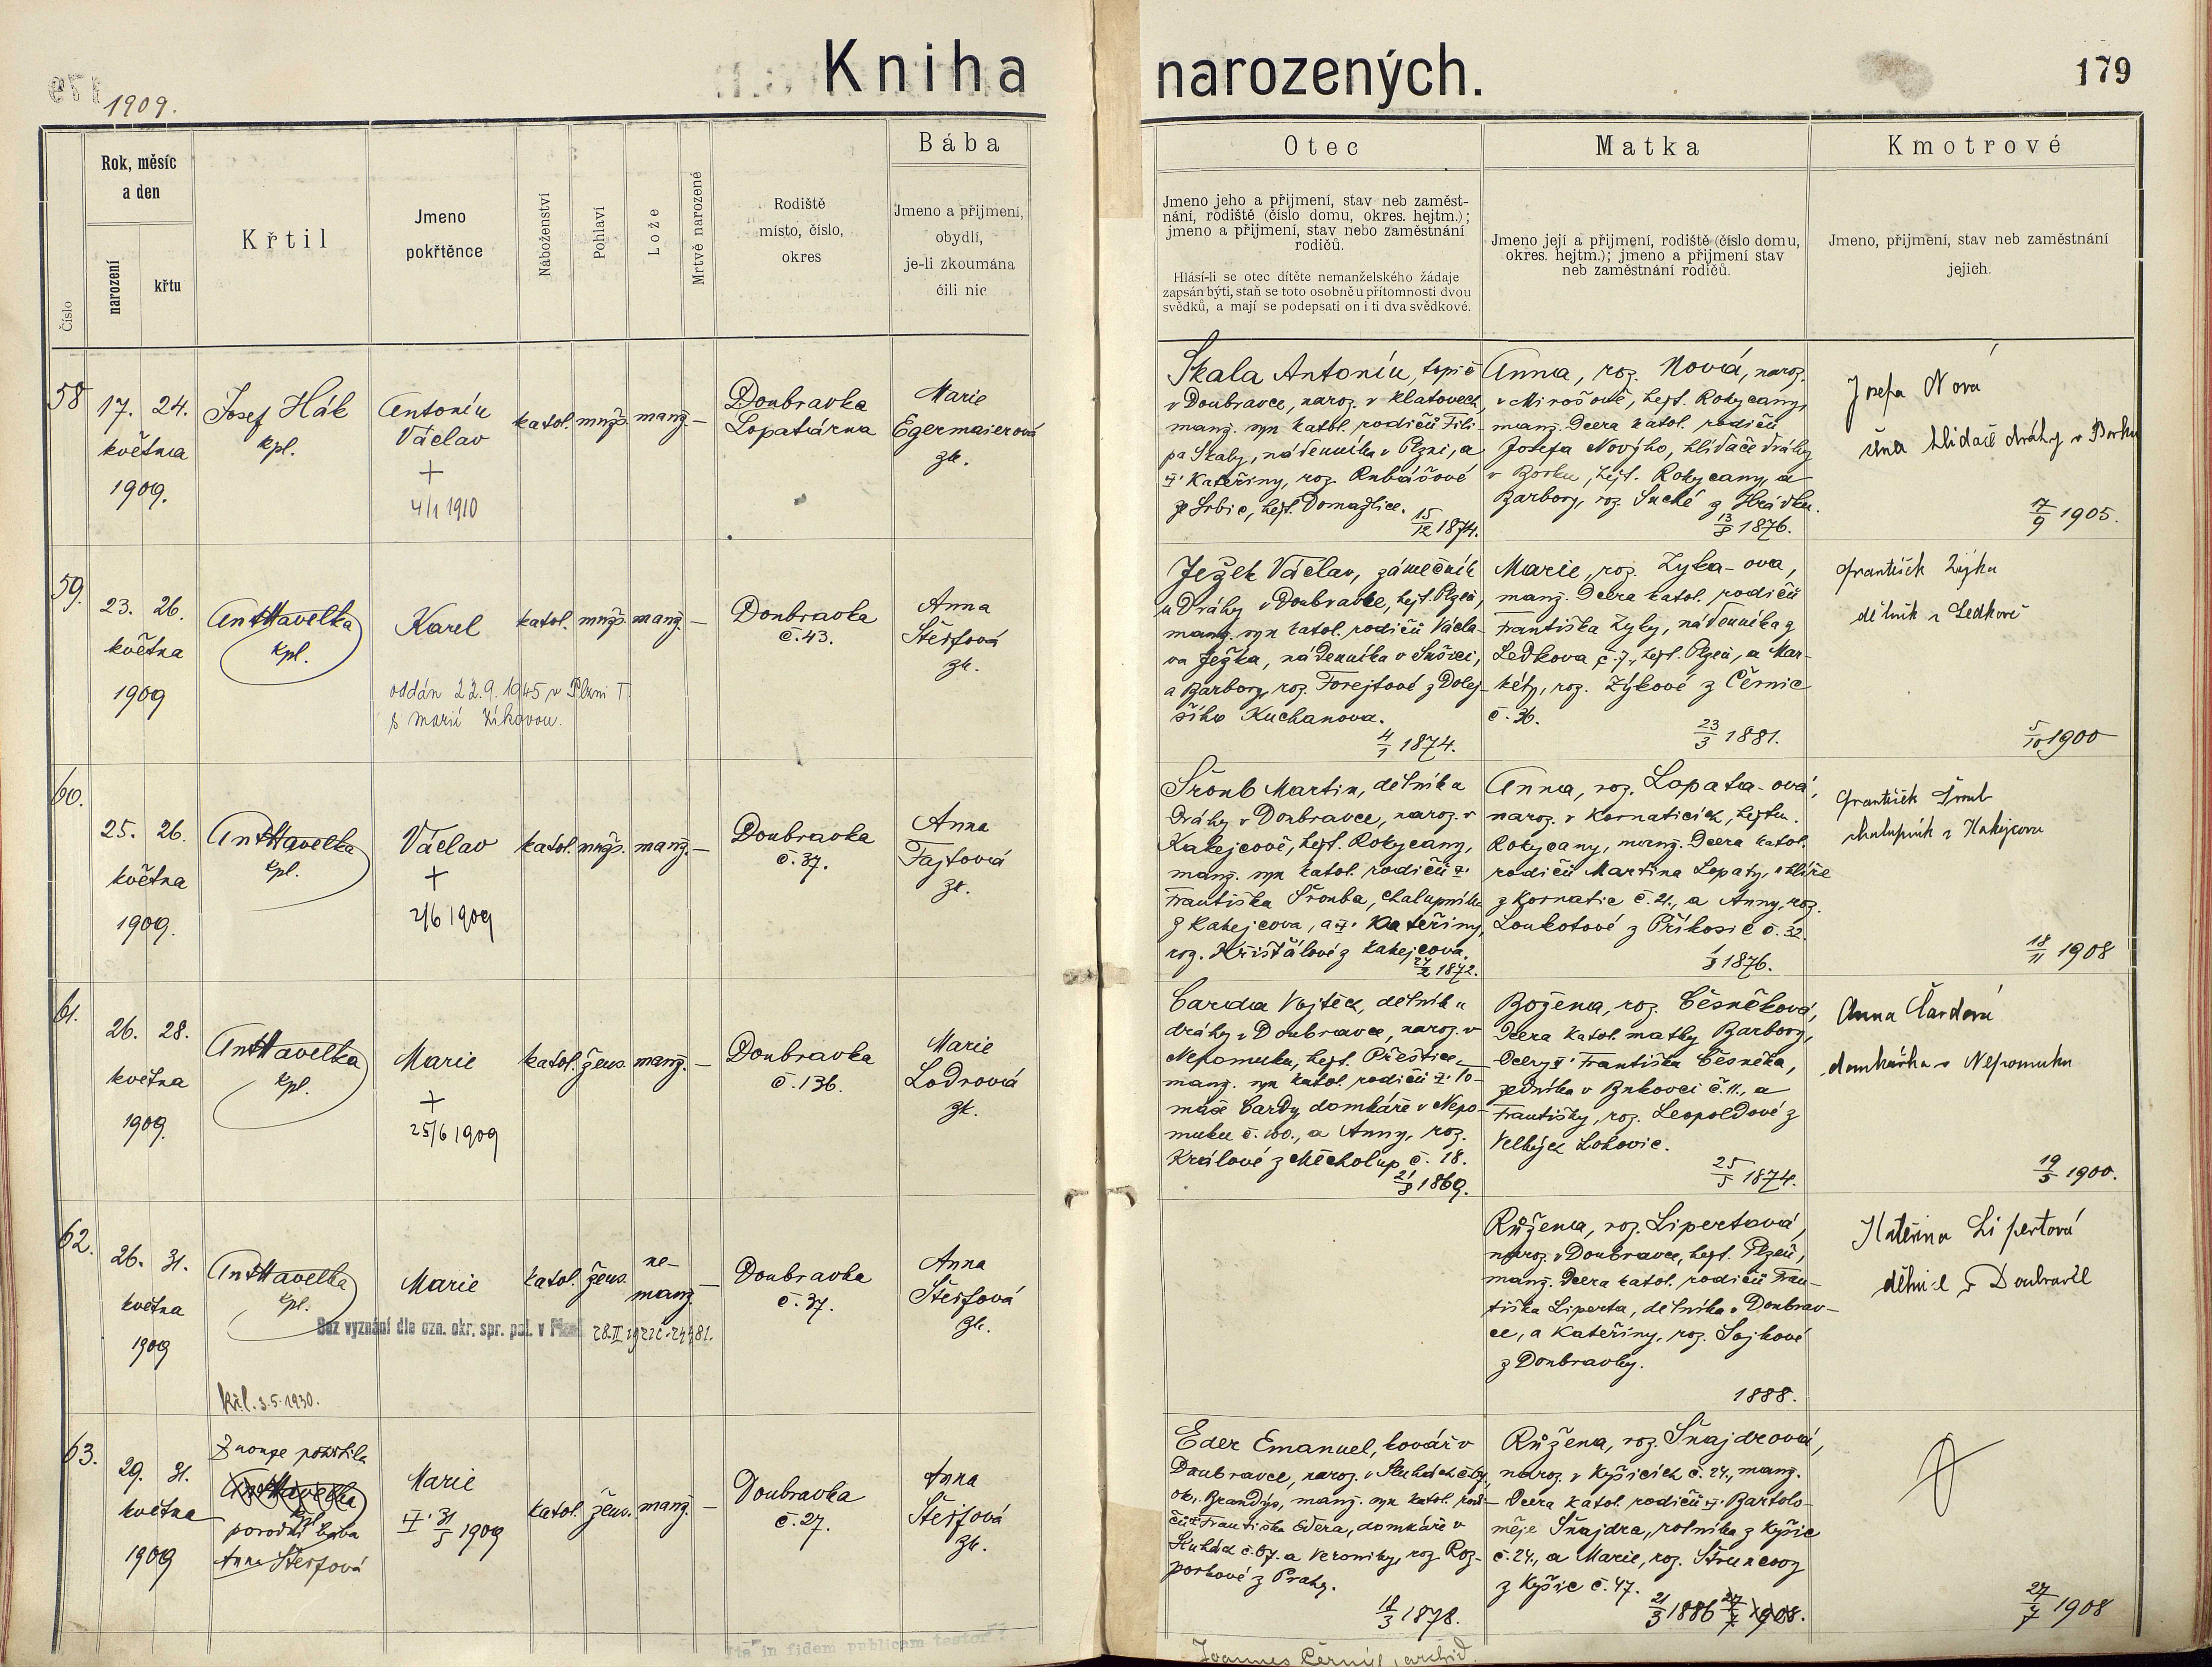 Kniha narozených.
179
1909.
Číslo
Rok, měsíc
a den
narození
křtu
Křtil
Jmeno
pokřtěnce
Náboženství
Pohlaví
Lože
Mrtvě narozené
Rodiště
místo, číslo,
okres
Bába
Jmeno a přijmení,
obydlí,
je-li zkoumána
čili nic
Otec
Jmeno jeho a přijmení, stav neb zaměst-
nání, rodiště (číslo domu, okres. hejtm.);
jmeno a přijmení, stav nebo zaměstnání
rodičů.
Hlásí-li se otec dítěte nemanželského žádaje
zapsán býti, staň se toto osobně u přítomnosti dvou
svědků, a mají se podepsati on i ti dva svědkové.
Matka
Jmeno její a přijmení, rodiště (číslo domu,
okres. hejtm.); jmeno a přijmení stav
neb zaměstnání rodičů.
Kmotrové
Jmeno, přijmení, stav neb zaměstnání
jejich.
58
17. 24.
května
1909.
Josef Hák
kpl.
Antonín
Václav
+
4/1 1910
katol.
mužs.
manž.
—
Doubravka
Lopatárna
Marie
Egermaierová
zk.
Skala Antonín, topič
v Doubravce, naroz. v Klatovech
manž. syn katol. rodičů Fili-
pa Skaly, nádenníka v Plzni, a
Kateřiny, roz. Rubášové
ze Srbic, hejt. Domažlice.
15/12 1874.
Anna, roz. Nová, naroz.
v Mirošově, hejt. Rokycany,
manž. dcera katol. rodičů
Josefa Nového, hlídače dráhy
v Borku, hejt. Rokycany, a
Barbory, roz. Suché z Hrádku.
13/8 1876.
Josefa Nová
žena hlídače dráhy v Borku
17/9 1905.
59.
23. 26.
května
1909
Ant Havelka
kpl.
Karel
oddán 22.9.1945 v Plzni I
s Marií Zíkovou.
katol.
mužs.
manž.
—
Doubravka
č. 43.
Anna
Šteifová
zk.
Ježek Václav, zámečník
u dráhy v Doubravce, hejt. Plzeň,
manž. syn katol. rodičů Václa-
va Ježka, nádenníka v Sušici,
a Barbory, roz. Forejtové z Dolej-
šího Kuchanova.
4/1 1874.
Marie, roz. Zyka-ova,
manž. dcera katol. rodičů
Františka Zyky, nádenníka z
Ledkova č. 7., hejt. Plzeň, a Mar-
kéty, roz. Zýkové z Černic
č. 36.
23/3 1881.
František Zýka
dělník z Ledkova
5/10 1900
60.
25. 26.
května
1909.
Ant Havelka
kpl.
Václav
+
2/6 1909
katol.
mužs.
manž.
—
Doubravka
č. 37.
Anna
Fajtová
zk.
Šroub Martin, dělník u
dráhy v Doubravce, naroz. v
Kakejcově, hejt. Rokycany,
manž. syn katol. rodičů
Františka Šrouba, chalupníka
z Kakejcova, a Kateřiny,
roz. Křišťálové z Kakejcova.
27/2 1872.
Anna, roz. Lopata-ová,
naroz. v Kornaticích, hejtm.
Rokycany, manž. dcera katol.
rodičů Martina Lopaty, uhlíře
z Kornatic č. 21., a Anny, roz.
Loukotové z Příkosic č. 32.
1/8 1876.
František Šroub
chalupník z Kakejcova
18/11 1908
61.
26. 28.
května
1909.
Ant Havelka
kpl.
Marie
+
25/6 1909
katol.
žens.
manž.
—
Doubravka
č. 136.
Marie
Lodrová
zk.
Čarda Vojtěch, dělník u
dráhy v Doubravce, naroz. v
Nepomuku, hejt. Přeštice,
manž. syn katol. rodičů To-
máše Čardy, domkáře v Nepo-
muku č. 100., a Anny, roz.
Králové z Měcholup č. 18.
21/8 1869.
Božena, roz. Česněková,
dcera katol. matky Barbory,
dcery Františka Česněka,
zedníka v Bukovci č. 11., a
Františky, roz. Leopoldové z
Velkých Lohovic.
25/5 1874.
Anna Čardová
domkářka v Nepomuku
19/5 1900.
62.
26. 31.
května
1909
Ant Havelka
kpl.
Bez vyznání dle ozn. okr. spr. pol. v Plzni
28.II
křl. 3.5.1930.
Marie
katol.
žens.
ne-
manž.
—
Doubravka
č. 37.
Anna
Šteifová
zk.
Růžena, roz. Lipertová,
naroz. v Doubravce, hejt. Plzeň,
manž. dcera katol. rodičů Fran-
tiška Liperta, dělníka v Doubrav-
ce, a Kateřiny, roz. Sojkové
z Doubravky.
1888.
Kateřina Lipertová
63.
29. 31.
května
1909
Z nouze pokřtila
Ant Havelka
kpl.
porodní bába
Anna Šteifová
Marie
31/5 1909
katol.
žens.
manž.
—
Doubravka
č. 27.
Anna
Šteifová
zk.
Eder Emanuel, kovář v
Doubravce, naroz. v
ok. Brandýs, manž. syn katol. rodi-
čů Františka Edera, domkáře v
č. 67. a Veroniky, roz. Roz-
porkové z Prahy.
18/3 1878.
Růžena, roz. Šnajdrová,
naroz. v Kyšicích č. 24., manž.
dcera katol. rodičů Bartolo-
měje Šnajdra, rolníka z Kyšic
č. 24., a Marie, roz. Štruncovy
z Kyšic č. 47.
21/3 1886 27/7 1908.
27/7 1908
Ita in fidem publicam testor!
Joannes Černý, archid.